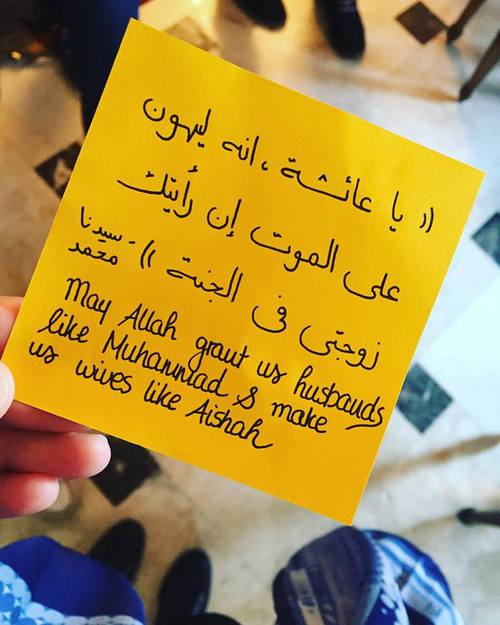 (( يا عائشة ، انه ليهون
على الموت إن رأيتك
زوجتى فى الجنة )) - سيدنا محمد
May Allah grant us husbands
like Muhammad & make
us wives like Aishah